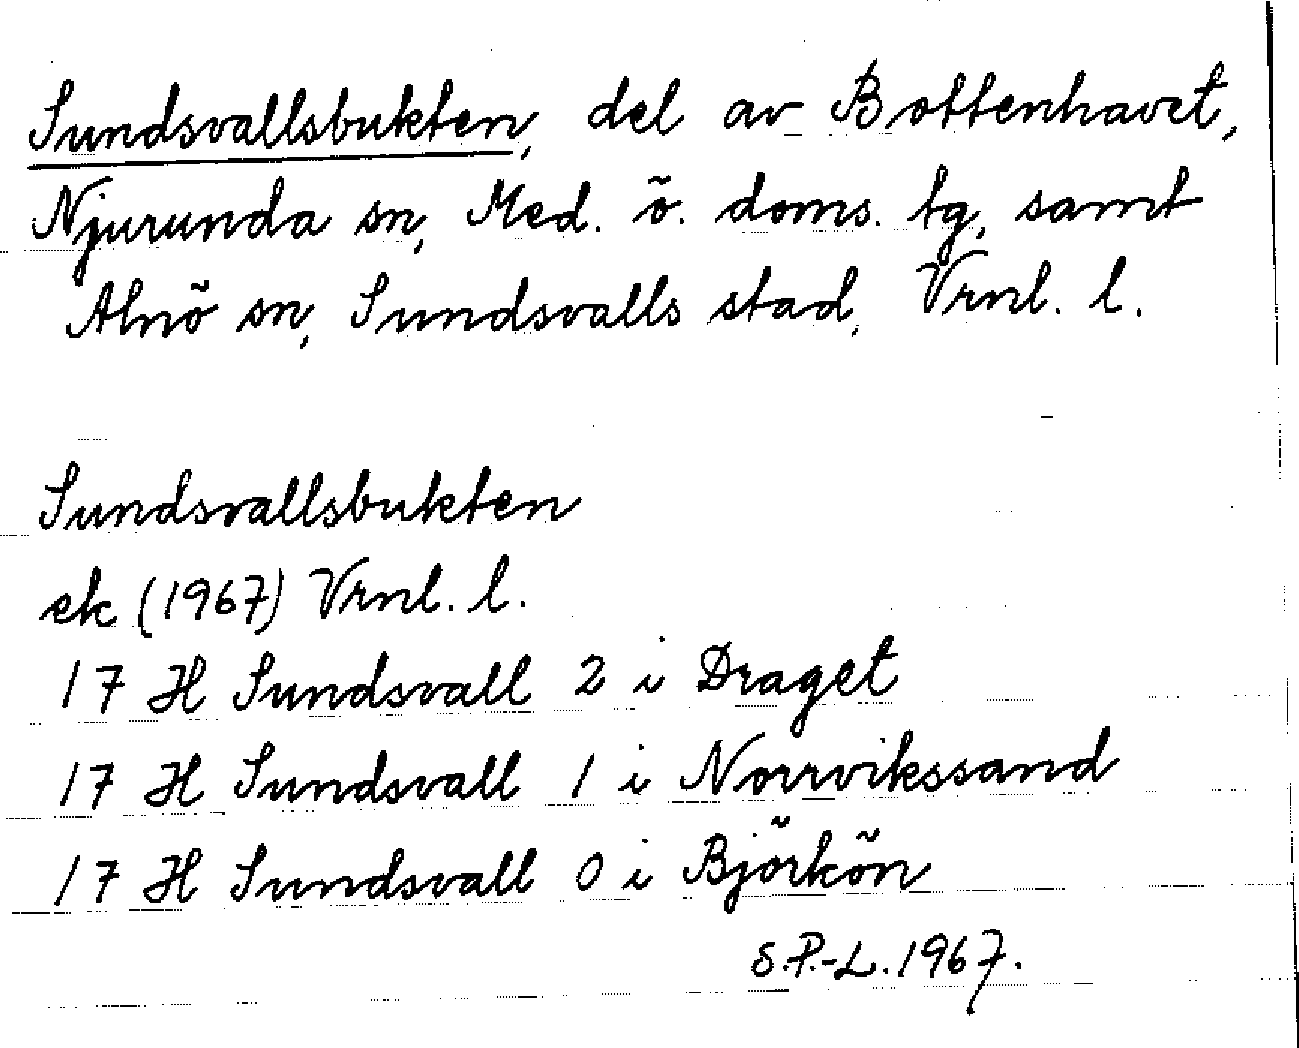 Sundsvallsbukten, del av Bottenhavet,
Njurunda sn, Med. ö. doms. tg, samt
Alnö sn, Sundsvalls stad, Vrnl. l.
Sundsvallsbukten
ek (1967) Vrnl. l.
17 H Sundsvall 2 i Draget
17 H Sundsvall 1 i Norrvikssand
17 H Sundsvall 0 i Björkön
S.P.-L. 1967.